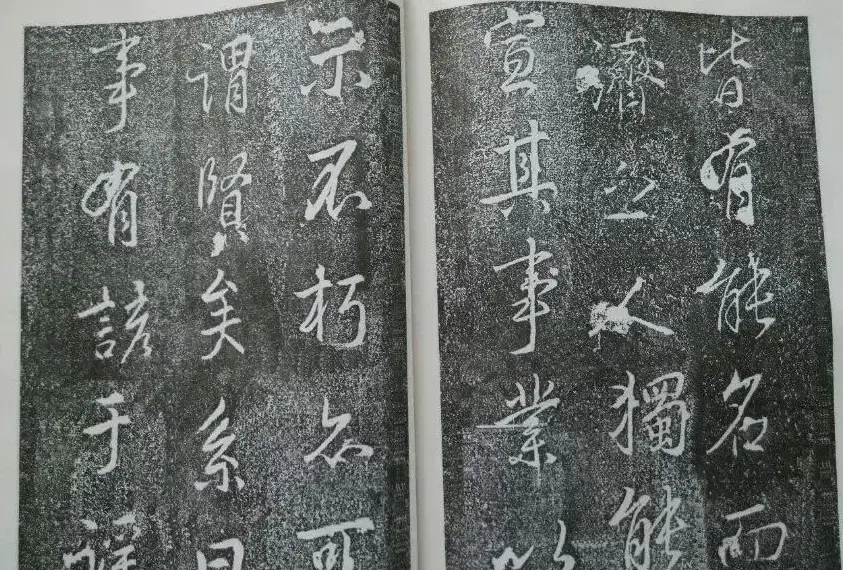 皆有能名而
濟之人獨能
宣其事業以
示不朽亦可
謂賢矣系曰
事有諺于